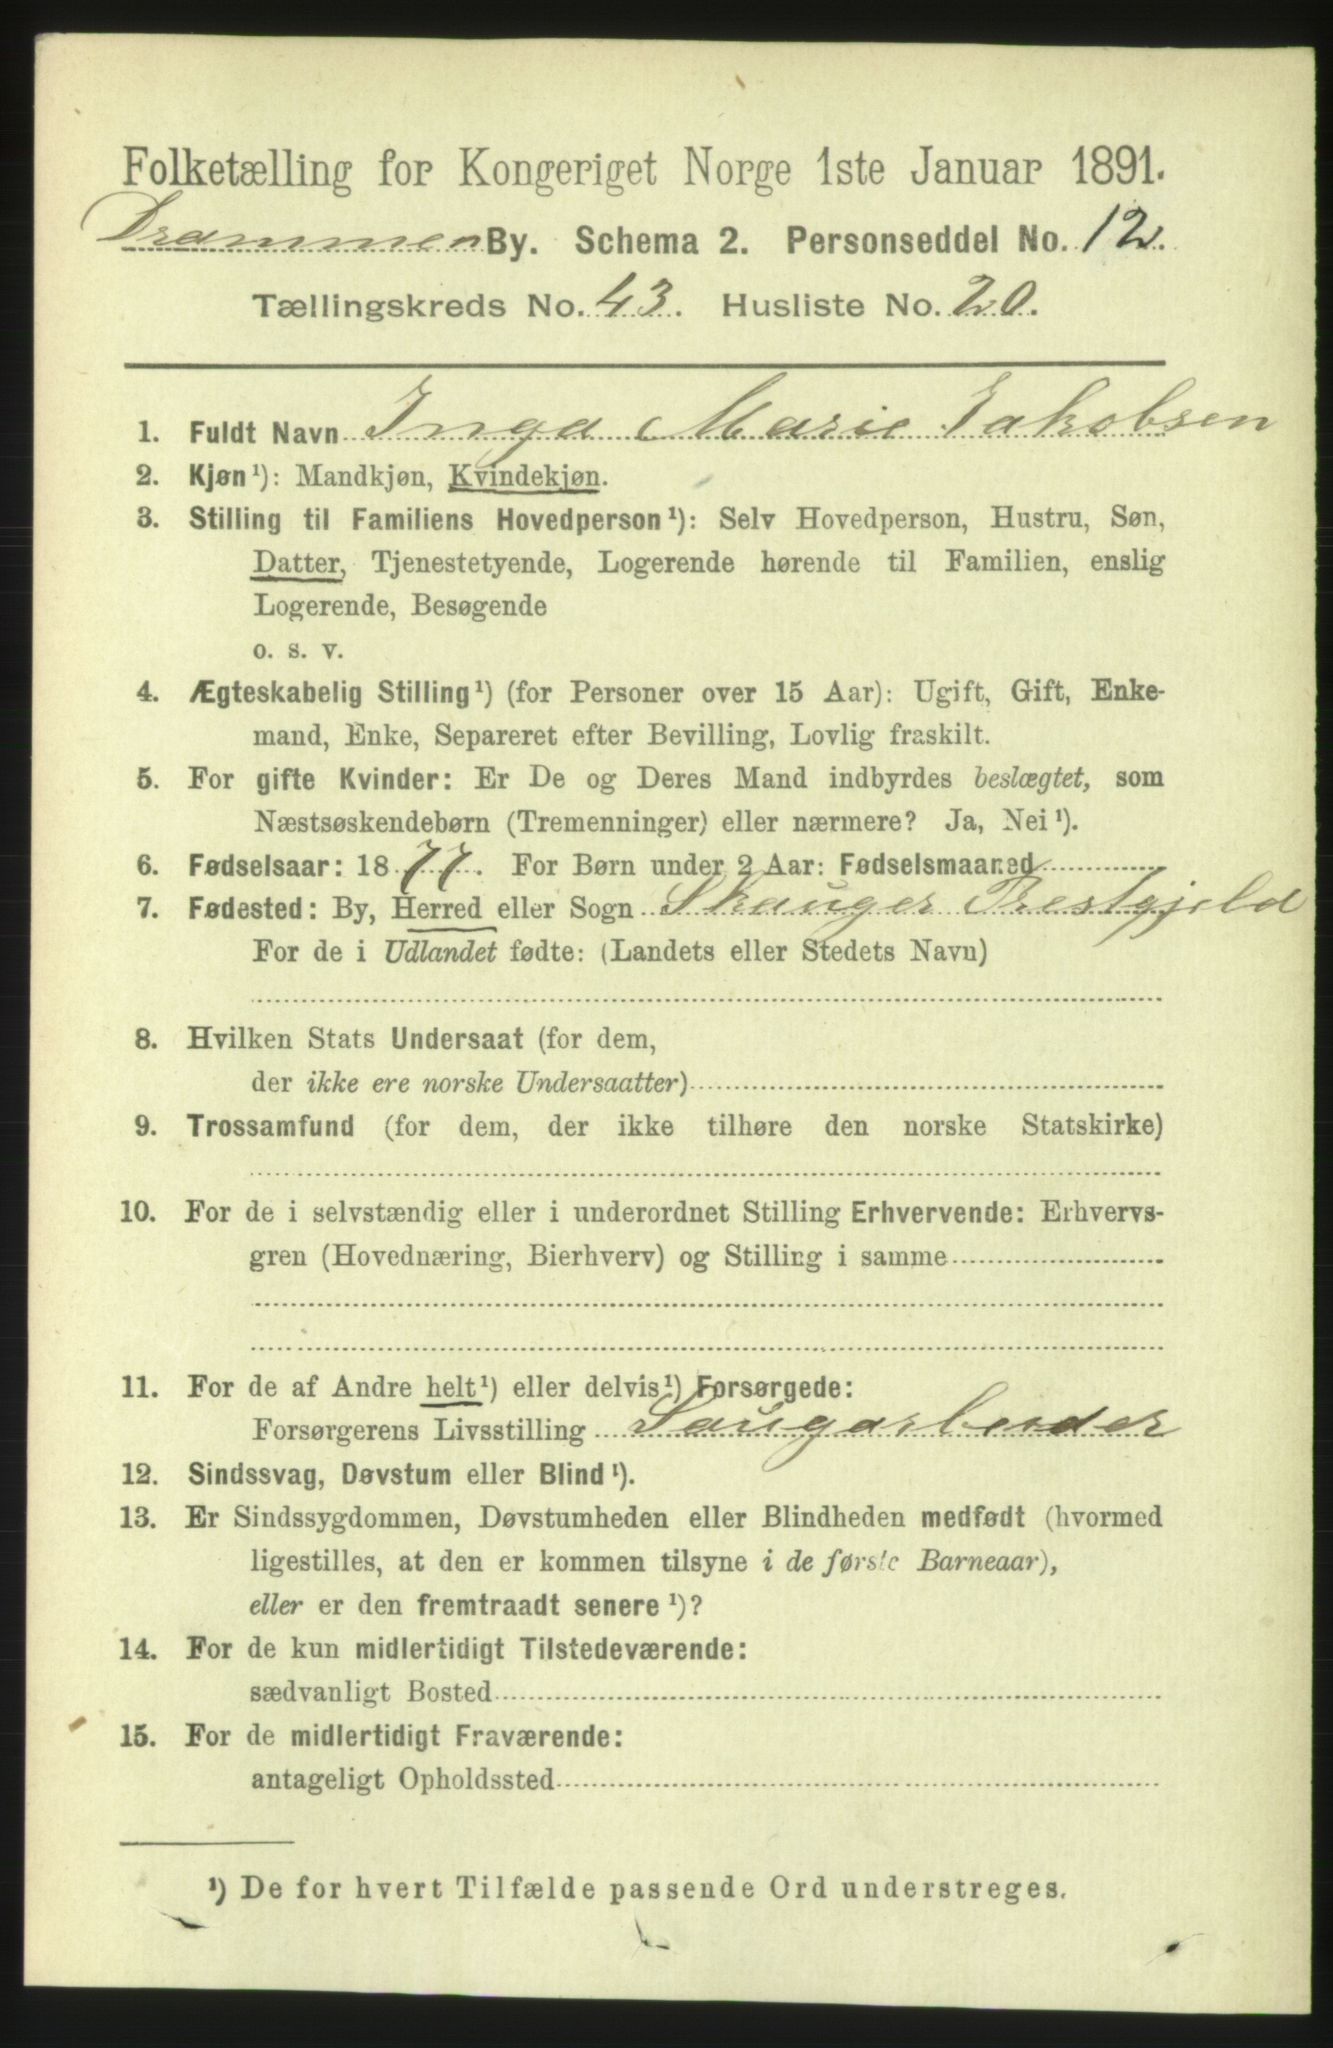 Folketælling for Kongeriget Norge 1ste Januar 1891.
Drammen By. Schema 2. Personseddel No. 12.
Tællingskreds No. 43. Husliste No. 20.
1. Fuldt Navn Inga Marie Jakobsen
2. Kjøn¹): Mandkjøn, Kvindekjøn.
3. Stilling til Familiens Hovedperson¹): Selv Hovedperson, Hustru, Søn,
Datter, Tjenestetyende, Logerende hørende til Familien, enslig
Logerende, Besøgende
o. s. v.
4. Ægteskabelig Stilling¹) (for Personer over 15 Aar): Ugift, Gift, Enke-
mand, Enke, Separeret efter Bevilling, Lovlig fraskilt.
5. For gifte Kvinder: Er De og Deres Mand indbyrdes beslægtet, som
Næstsøskendebørn (Tremenninger) eller nærmere? Ja, Nei¹).
6. Fødselsaar: 1877. For Børn under 2 Aar: Fødselsmaaned
7. Fødested: By, Herred eller Sogn Skauger Prestgjeld
For de i Udlandet fødte: (Landets eller Stedets Navn)
8. Hvilken Stats Undersaat (for dem,
der ikke ere norske Undersaatter)
9. Trossamfund (for dem, der ikke tilhøre den norske Statskirke)
10. For de i selvstændig eller i underordnet Stilling Erhvervende: Erhvervs-
gren (Hovednæring, Bierhverv) og Stilling i samme
11. For de af Andre helt¹) eller delvis¹) Forsørgede:
Forsørgerens Livsstilling Saugarbeider
12. Sindssvag, Døvstum eller Blind¹).
13. Er Sindssygdommen, Døvstumheden eller Blindheden medfødt (hvormed
ligestilles, at den er kommen tilsyne i de første Barneaar),
eller er den fremtraadt senere¹)?
14. For de kun midlertidigt Tilstedeværende:
sædvanligt Bosted
15. For de midlertidigt Fraværende:
antageligt Opholdssted
¹) De for hvert Tilfælde passende Ord understreges.